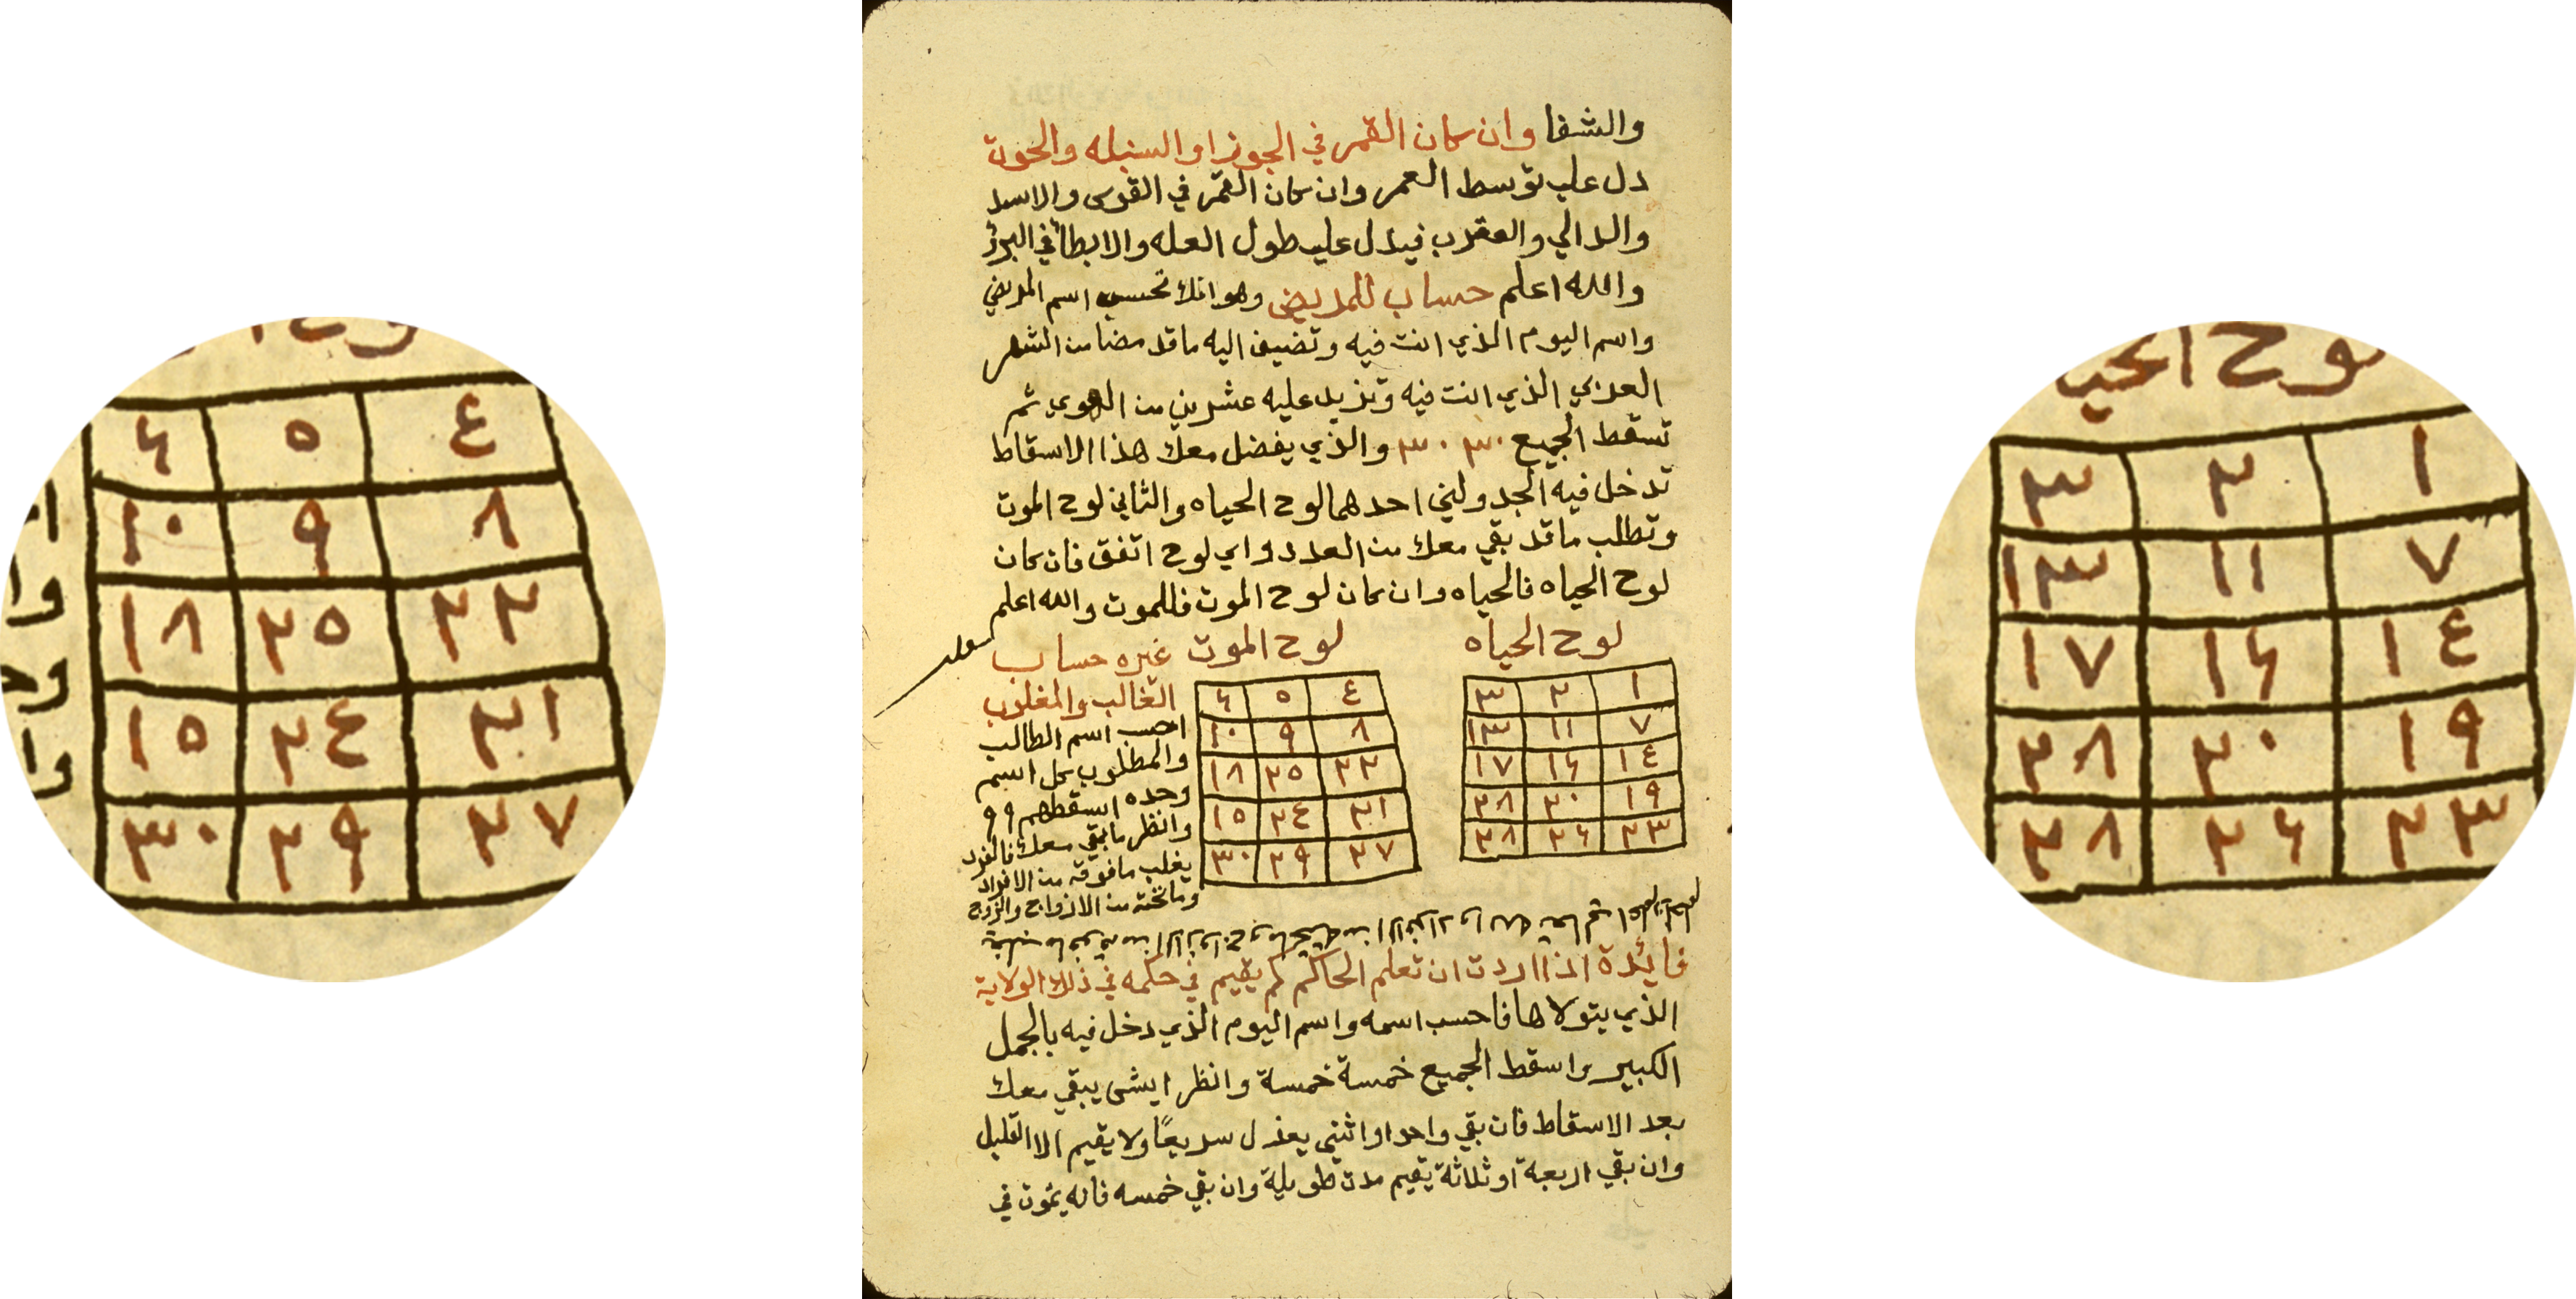 والشفا وان كان القمر في الجوزا او السنبله والحوت
دل على توسط العمر وان كان القمر في القوس والاسد
والدالي والعقرب فيدل على طول العله والابطا في البرؤ
والله اعلم حساب للمريض وهو انك تحسب اسم المريض
واسم اليوم الذي انت فيه وتضيف اليه ما قد مضا من الشهر
العربي الذي انت فيه وتزيد عليه عشرين من الهوى ثم
تسقط الجميع ٣٠ ٣٠ والذي يفضل معك هذا الاسقاط
تدخل فيه الجدولين احدهما لوح الحياه والثاني لوح الموت
وتطلب ما قد بقي معك من العدد واي لوح اتفق فان كان
لوح الحياه فالحياه وان كان لوح الموت فللموت والله اعلم
لوح الحياه
١ ٢ ٣
٧ ١١ ١٣
١٤ ١٦ ١٧
١٩ ٢٠ ٢٨
٢٣ ٢٦ ٢٨
لوح الموت
٤ ٥ ٦
٨ ٩ ١٠
٢٢ ٢٥ ١٨
٢١ ٢٤ ١٥
٢٧ ٢٩ ٣٠
غيره حساب
الغالب والمغلوب
احسب اسم الطالب
والمطلوب كل اسم
وحده اسقطهم ٩ ٩
وانظر ما بقي معك فالفرد
يغلب ما فوقه من الافراد
وما تحته من الازواج والزوج
فائدة اذا اردت ان تعلم الحاكم كم يقيم في حكمه في ذلك الولاية
الذي يتولاها فاحسب اسمه واسم اليوم الذي دخل فيه بالجمل
الكبير واسقط الجميع خمسة خمسة وانظر ايشى يبقي معك
بعد الاسقاط فان بقي واحد او اثنين يعزل سريعًا ولا يقيم الا القليل
وان بقي اربعة او ثلاثة يقيم مدت طويلة وان بقي خمسه فانه يموت في
لوح الموت
٤ ٥ ٦
٨ ٩ ١٠
٢٢ ٢٥ ١٨
٢١ ٢٤ ١٥
٢٧ ٢٩ ٣٠
لوح الحياه
١ ٢ ٣
٧ ١١ ١٣
١٤ ١٦ ١٧
١٩ ٢٠ ٢٨
٢٣ ٢٦ ٢٨